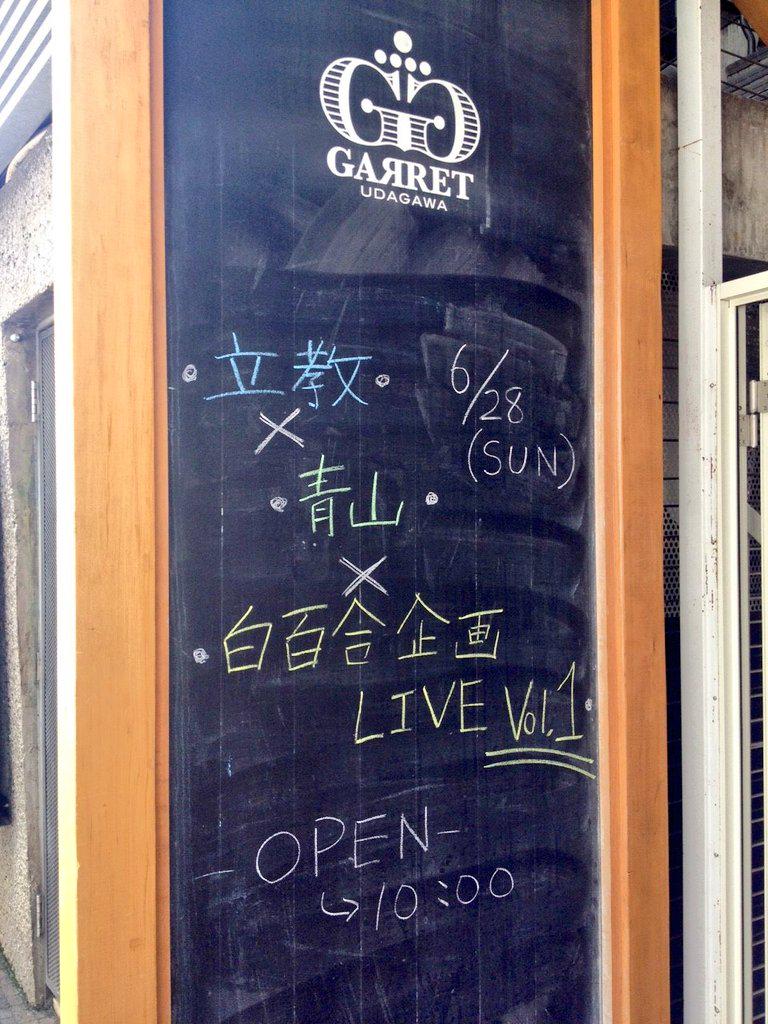 GARRET
UDAGAWA
立教
6/28
(SUN)
×
青山
×
白百合企画
LIVE Vol.1
-OPEN-
↳10:00